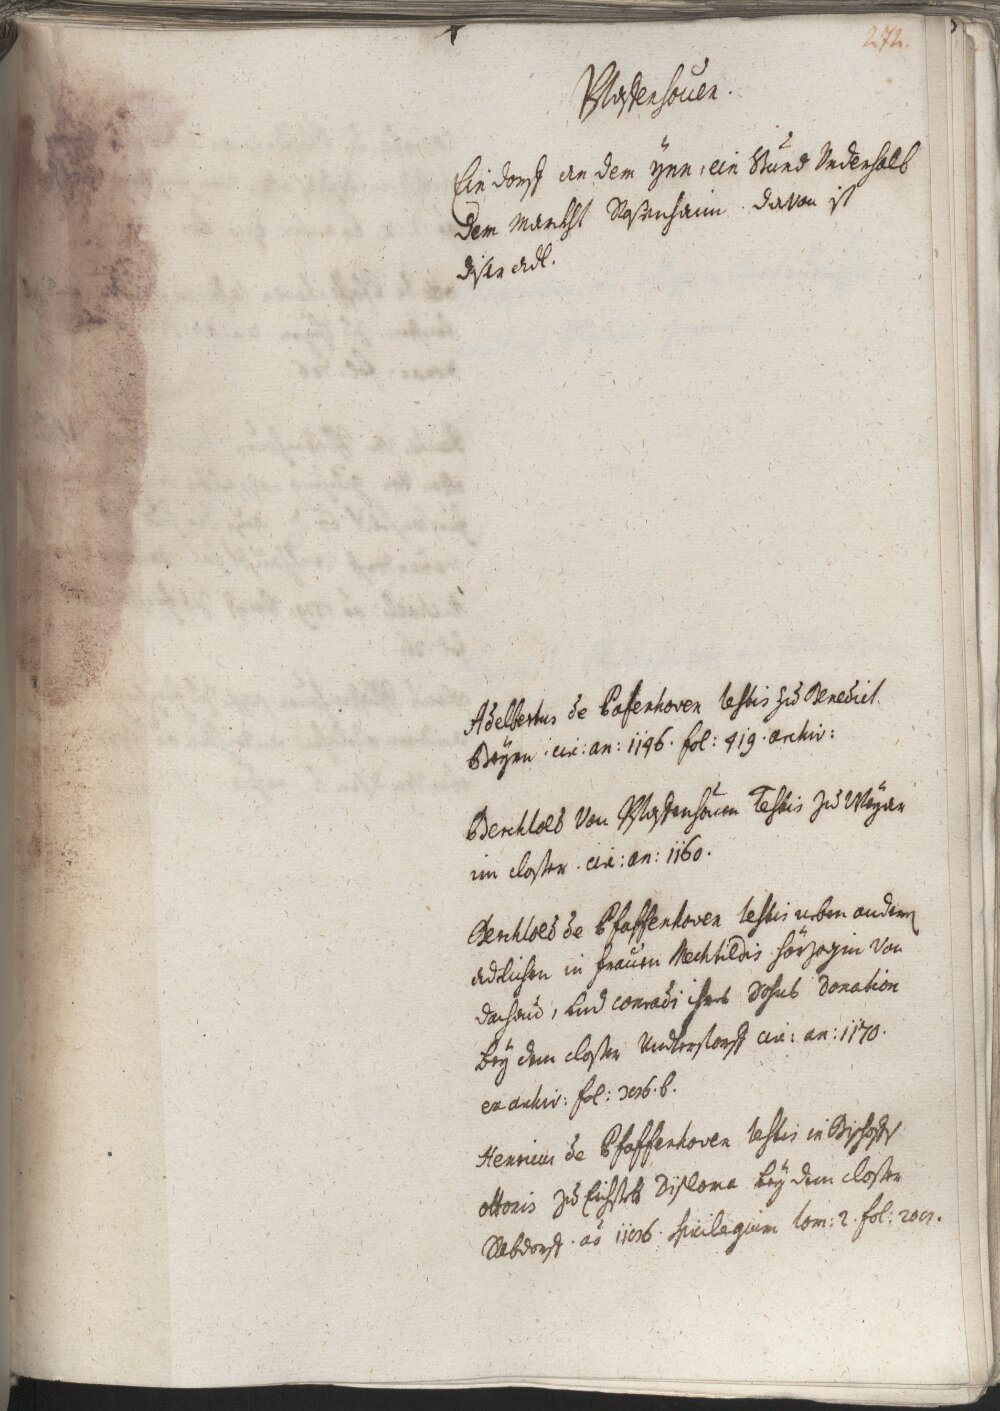 272.
Pfaffenhouen.
Ein dorff an dem ÿnn, ein Stund Underhalb
dem Marckht Rosenhaim. davon ist
diser adl.
Adelbertus de Pafenhoven testis zu Benedict
Beÿrn. cir: an: 1146. fol: 419. archiv:
Berchtold Von Pfaffenhouen Testis zu Weÿarn
im closter. cir: an: 1160.
Berchtold de Pfaffenhoven testis neben andern
adlichen in frauen Mechtildis hörzogin Von
dachau, und Conradi ihres Sohns Donation
beÿ dem closter Understorff cir: an: 1170.
ex archiv: fol:
Henricus de Pfaffenhoven testis in Bischoffs
Ottonis zu Eichstett Diploma beÿ dem closter
Rebdorff. aõ spicilegium tom: 2. fol: